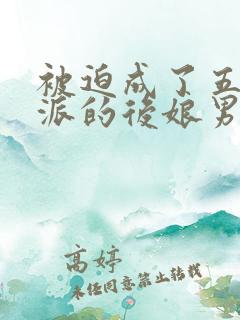 被迫成了五
派的後娘男
高婷
未经同意禁止转载